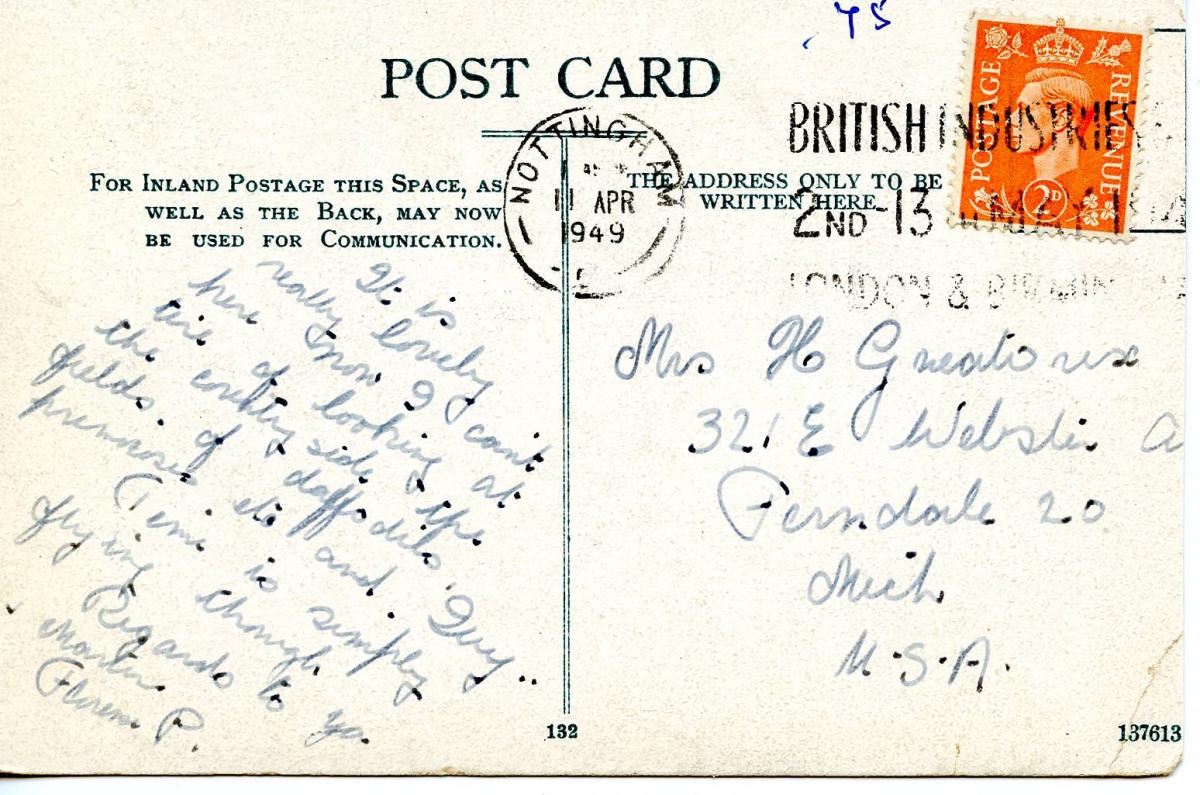 75
POST CARD
FOR INLAND POSTAGE THIS SPACE, AS
WELL AS THE BACK, MAY NOW
BE USED FOR COMMUNICATION.
THE ADDRESS ONLY TO BE
WRITTEN HERE.
NOTTINGHAM
11 APR
1949
BRITISH INDUSTRIES
2ND-13 MAY
LONDON & BIRMIN
POSTAGE
REVENUE
2D
It is
really lovely
here Mom I can't
tire of looking at
the country side, the
fields of daffodils,
primroses etc and
Time is simply
flying though.
Regards to ya.
P.
Mrs H Greatorex
321 E Webster A
Ferndale 20
Mich
U.S.A.
132
137613